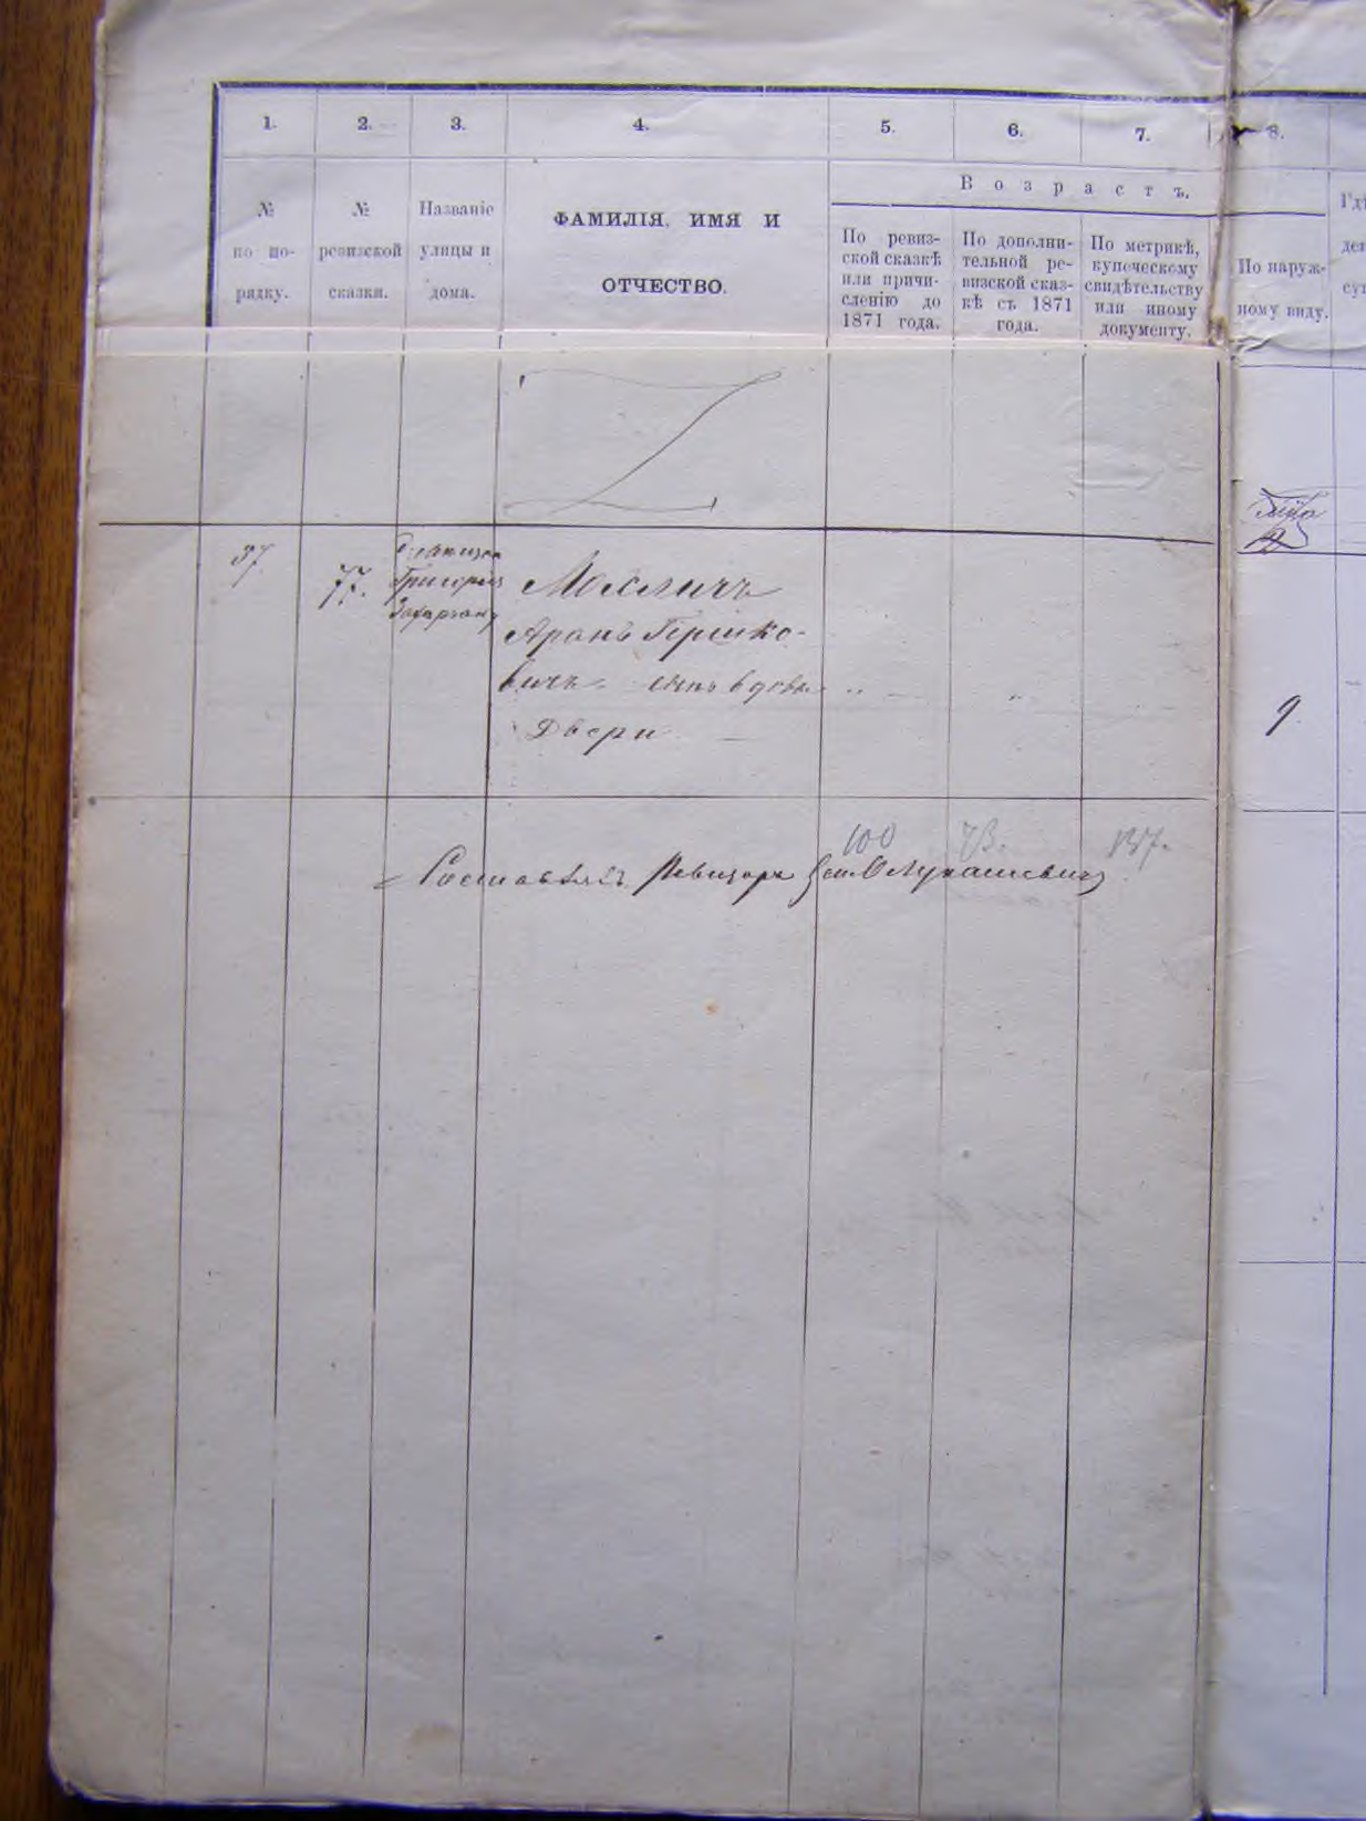 1. 2. 3. 4. 5. 6. 7. 8.
№ по по-рядку.
№ ревизской сказки.
Названіе улицы и дома.
ФАМИЛІЯ, ИМЯ И
ОТЧЕСТВО.
Возрастъ.
По ревиз-
ской сказкѣ
или причи-
сленію до
1871 года.
По дополни-
тельной ре-
визской сказ-
кѣ съ 1871
года.
По метрикѣ,
купеческому
свидѣтельству
или иному
документу.
По наруж-
ному виду.
37
77.
Григорія
Аранъ Гершко-
вичъ сынъ вдовы
Двери
9
100 73. 137.
Составлялъ Ревизоръ